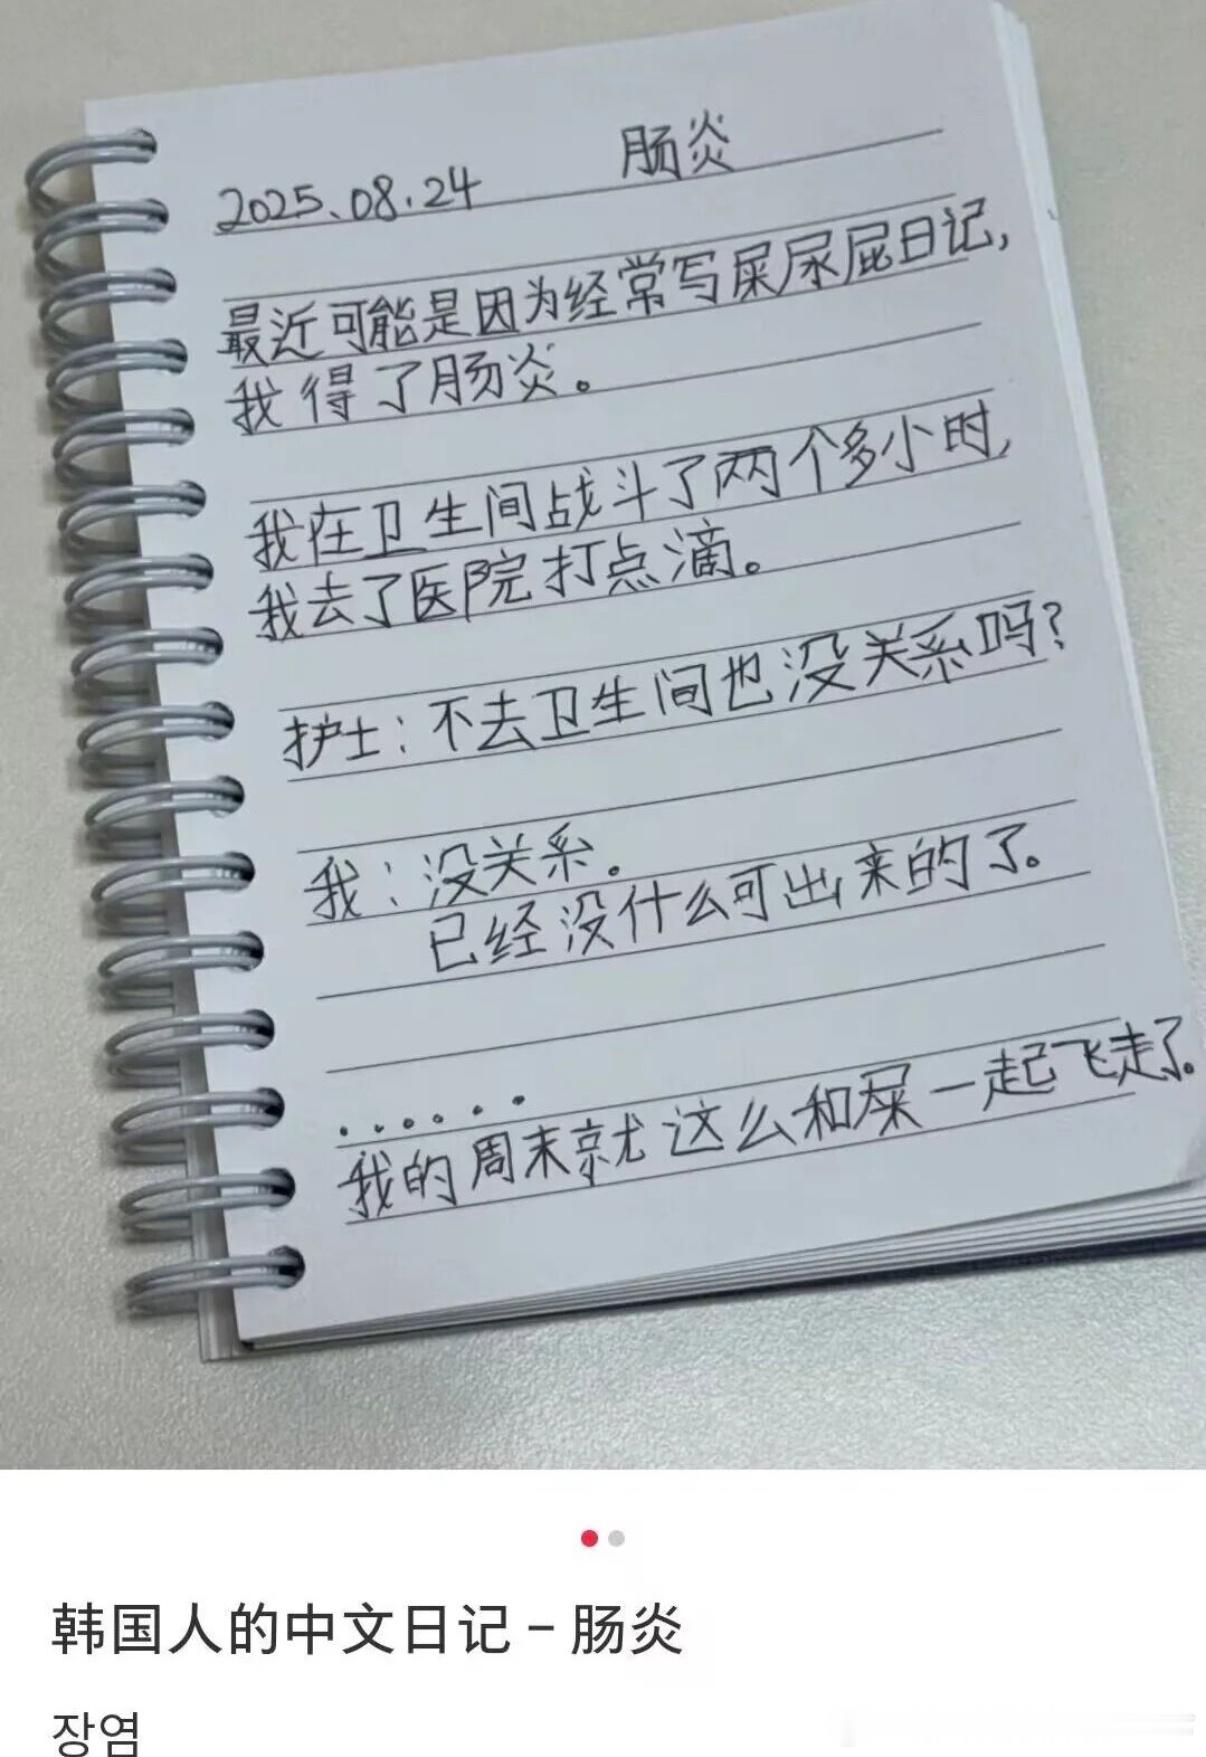 2025.08.24 肠炎
最近可能是因为经常写屎尿屁日记,
我得了肠炎。
我在卫生间战斗了两个多小时,
我去了医院打点滴。
护士:不去卫生间也没关系吗?
我:没关系。
已经没什么可出来的了。
......
我的周末就这么和屎一起飞走了。
韩国人的中文日记 – 肠炎
장염